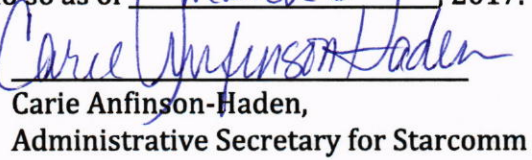 so as of 2017.
Carie Anfinson-Haden
Carie Anfinson-Haden,
Administrative Secretary for Starcomm